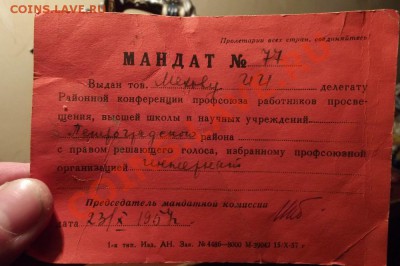 COINS.LAVE.RU
Пролетарии всех стран, соединяйтесь!
МАНДАТ № 77
Выдан тов. Мехову И И делегату
Районной конференции профсоюза работников просве-
щения, высшей школы и научных учреждений
Петроградского района
с правом решающего голоса, избранному профсоюзной
организацией Интернат
Председатель мандатной комиссии
дата 23/X 1957 г.
1-я тип. Изд. АН. Зак.